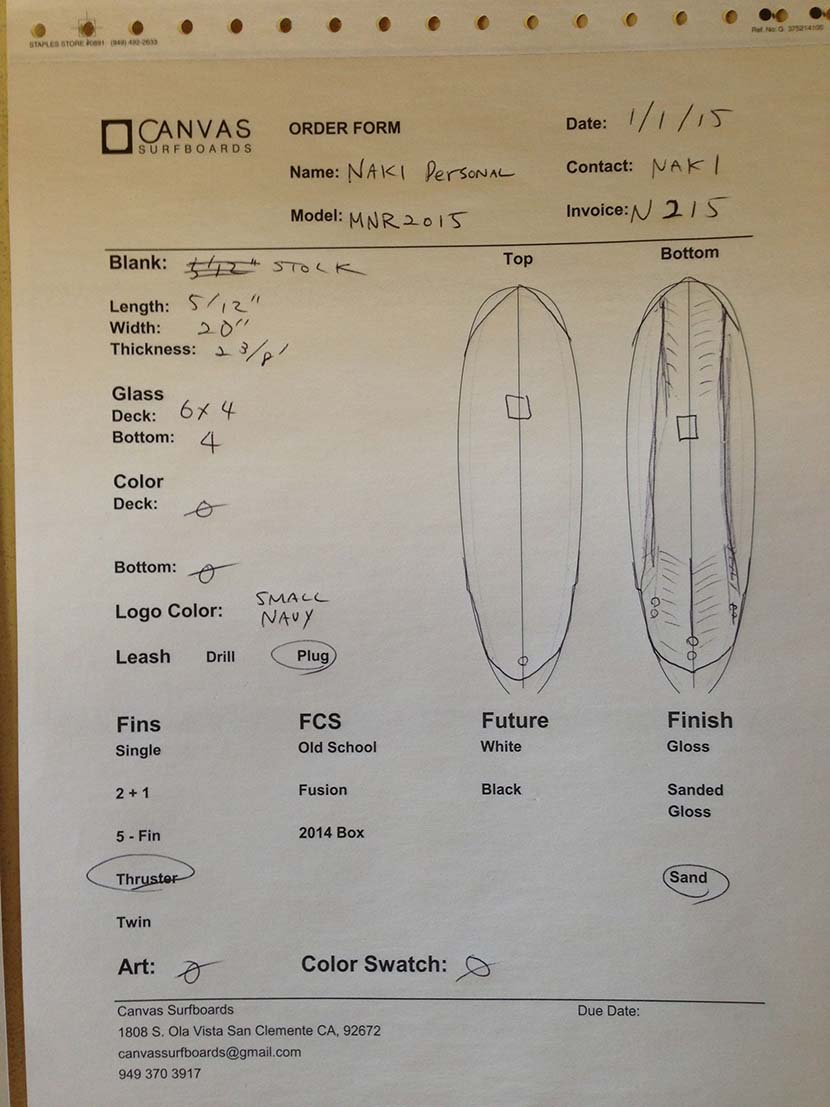 STAPLES STORE #0891 (949) 492-2633
Ref. No: G 375214106
CANVAS
SURFBOARDS
ORDER FORM
Date: 1/1/15
Name: NAKI PERSONAL
Contact: NAKI
Model: MNR2015
Invoice: N 215
Blank: 5/12" STOCK
Top
Bottom
Length: 5/12"
Width: 20"
Thickness: 2 3/8'
Glass
Deck: 6x4
Bottom: 4
Color
Deck: Ø
Bottom: Ø
Logo Color: SMALL
NAVY
Leash Drill Plug
Fins FCS Future Finish
Single Old School White Gloss
2 + 1 Fusion Black Sanded
Gloss
5 - Fin 2014 Box
Thruster Sand
Twin
Art: Ø Color Swatch: Ø
Canvas Surfboards Due Date:
1808 S. Ola Vista San Clemente CA, 92672
canvassurfboards@gmail.com
949 370 3917